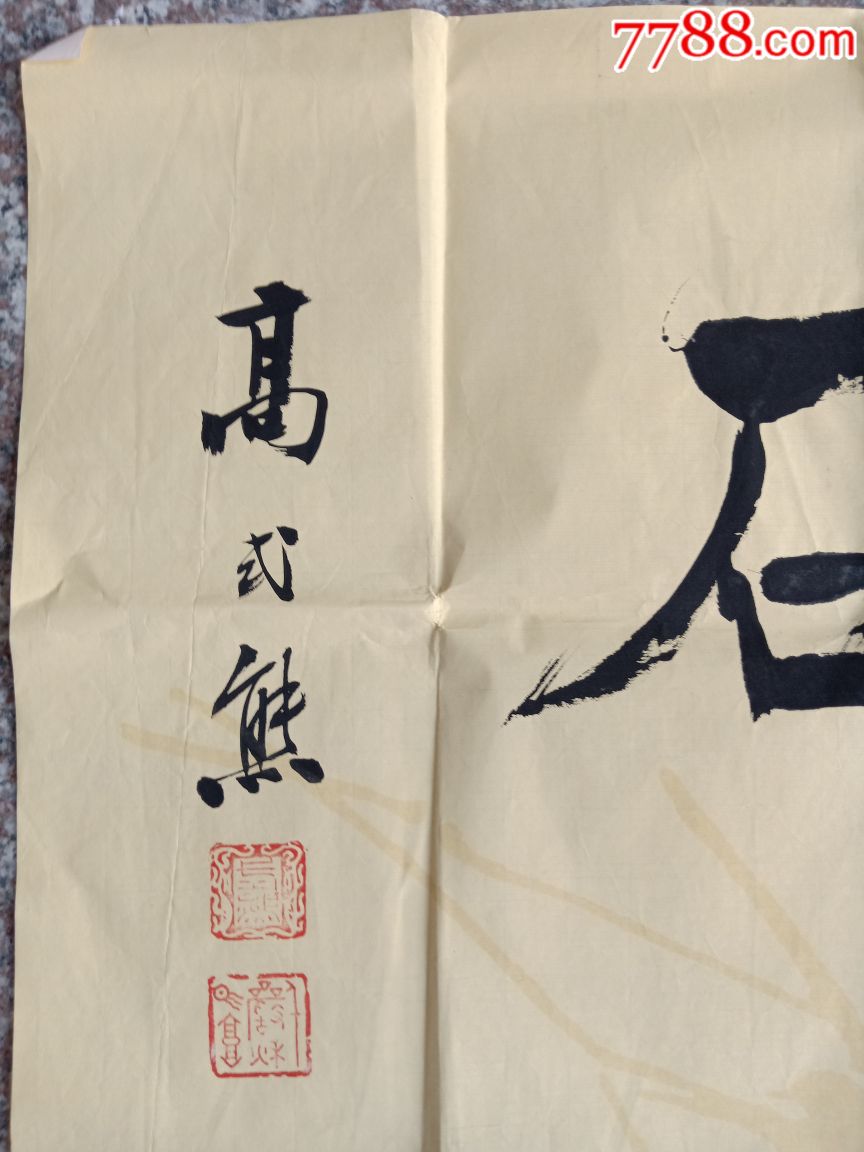 7788.com
石
高式熊